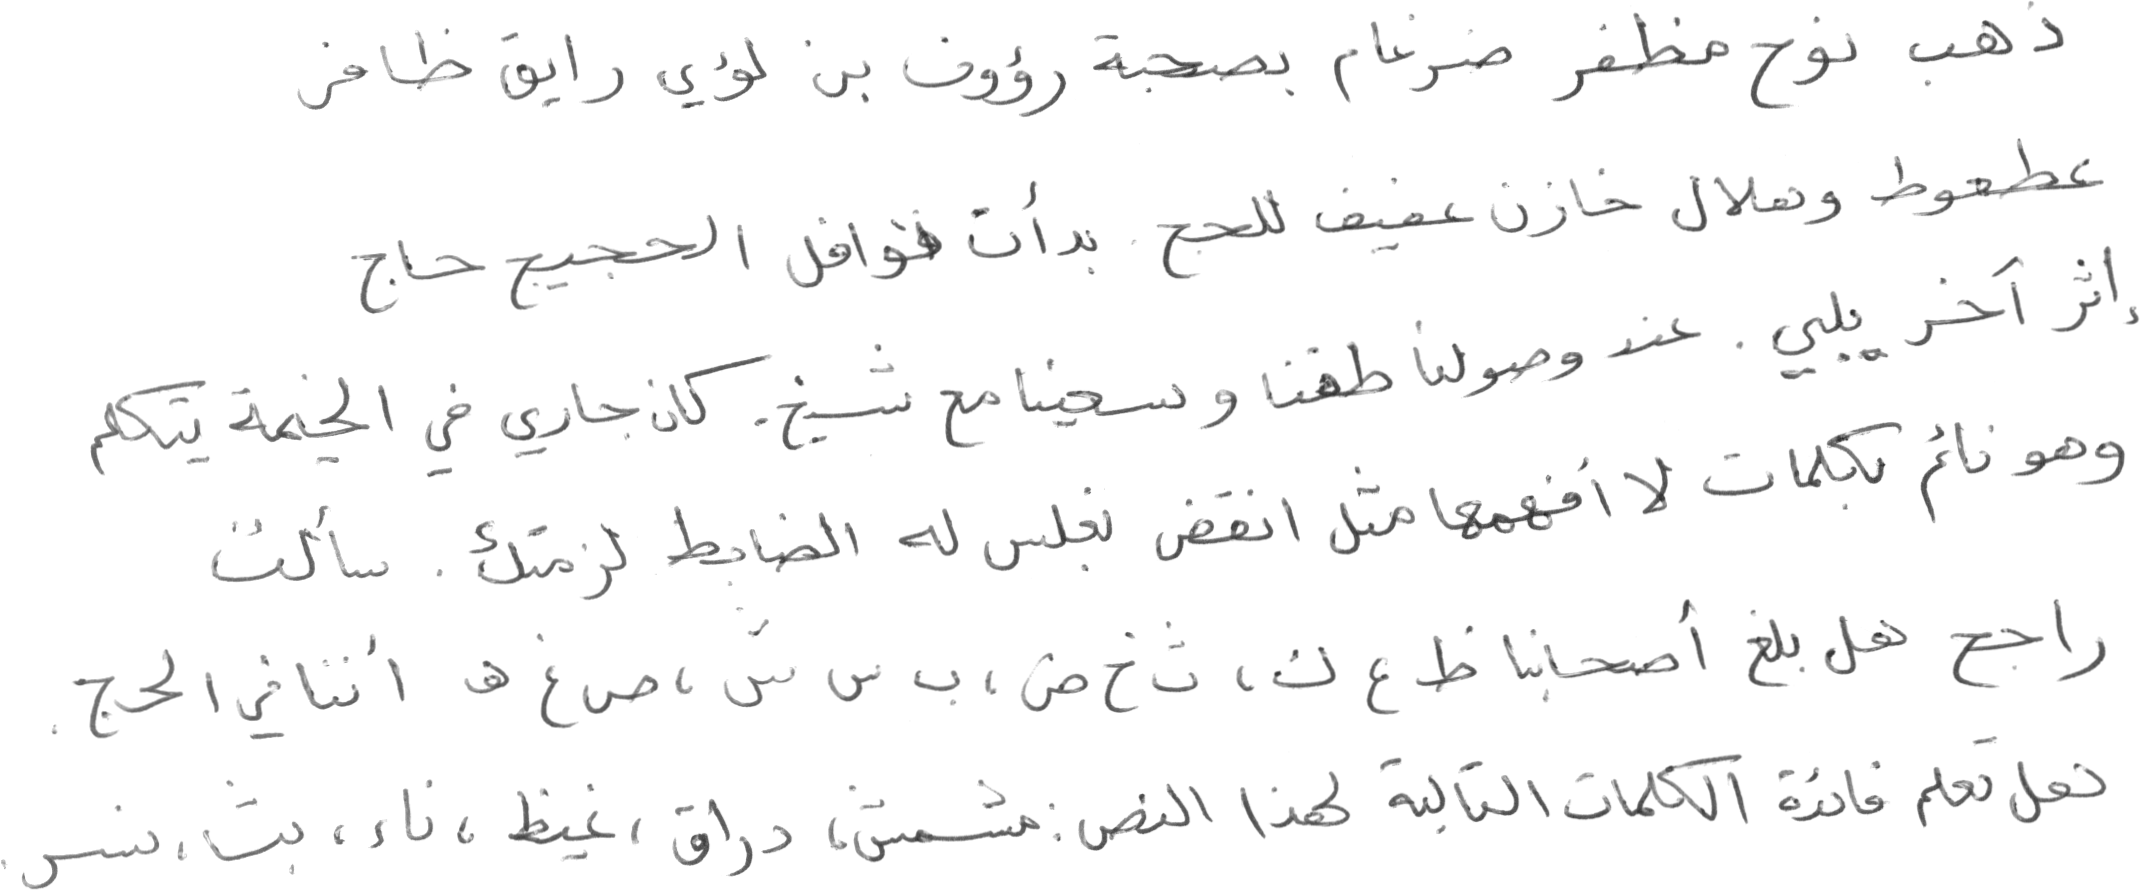 ذهب نوح مظفر ضرغام بصحبة رؤوف بن لؤي رايق ظافر
عطعوط وهلال خازن عفيف للحج . بدأت قوافل الحجيج حاج
إثر آخر يلبي . عند وصولنا طفنا وسعينا مع شيخ . كان جاري في الخيمة يتكلم
وهو نائم بكلمات لا أفهمها مثل انقض نغلس له الضابط لزمتك . سألت
راجح هل بلغ أصحابنا ظ ع ك ، ث خ ض ، ب س ش ، ص غ ه أننا في الحج .
هل تعلم فائدة الكلمات التالية لهذا النص : مشمش ، دراق ، غيظ ، ناء ، بث ، نسر .